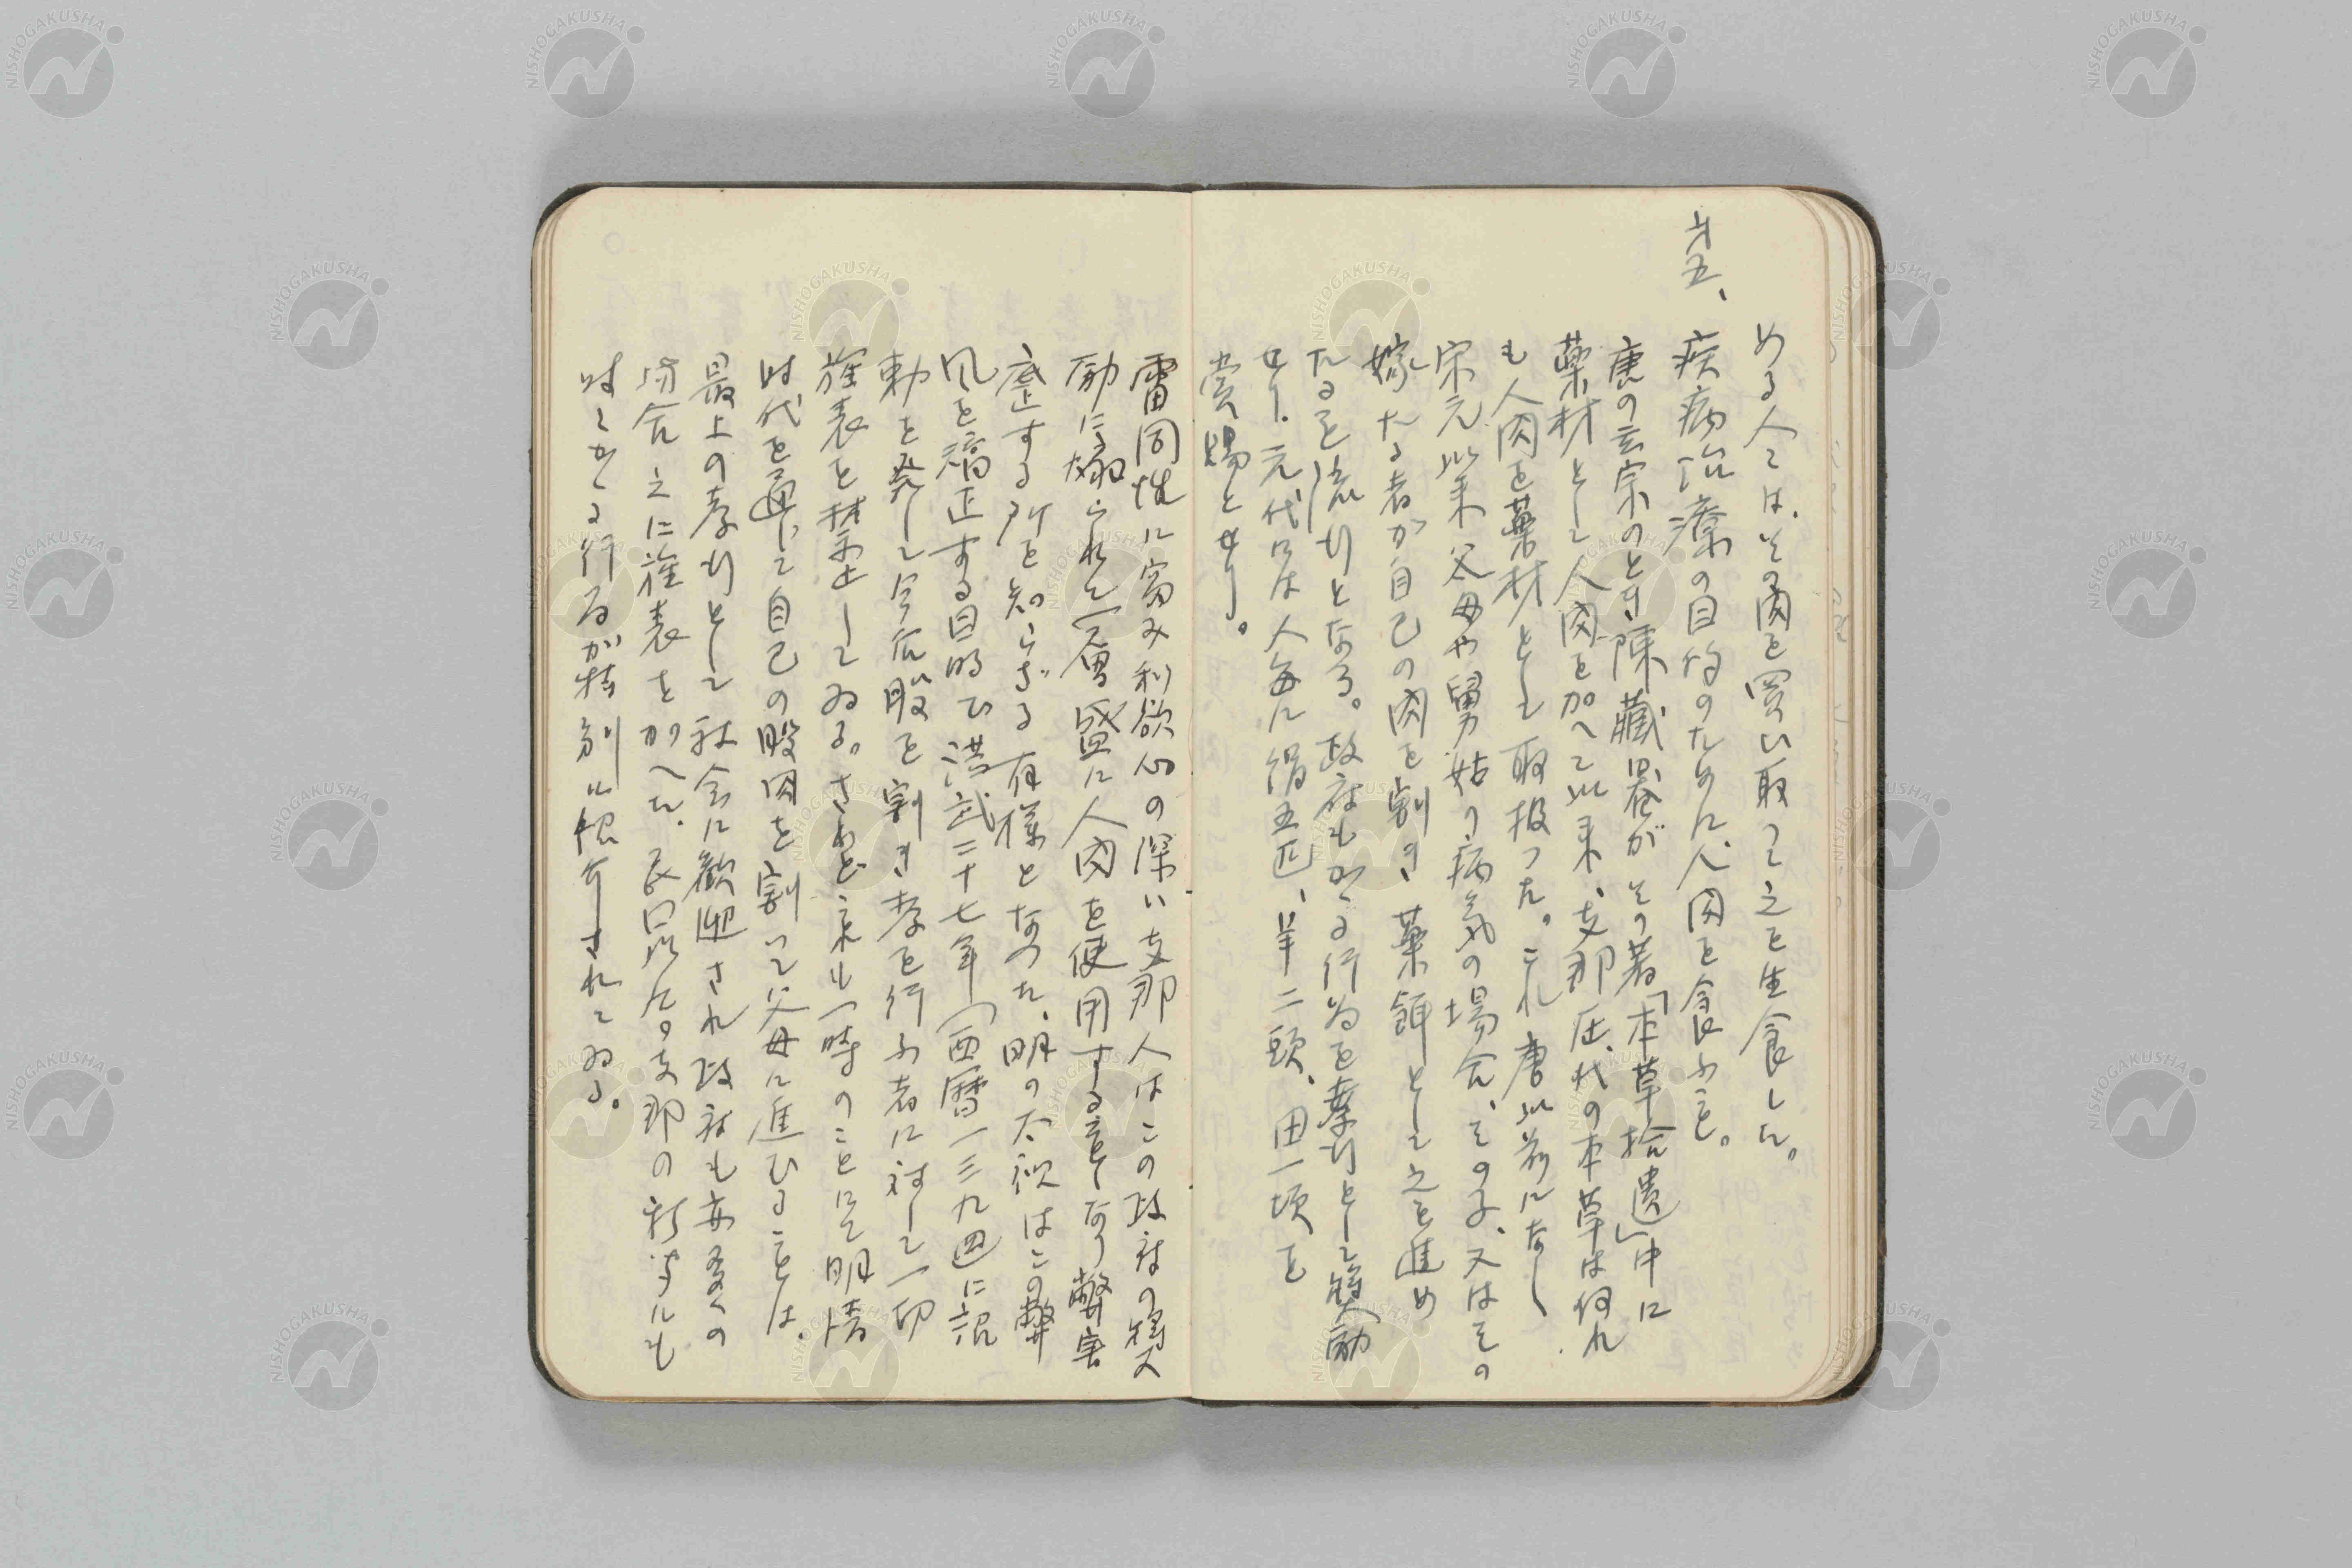 める人では、その肉を買ひ取つて之を生食した。
才五、疾病治療の目的のために、人肉を食ふこと。
唐の玄宗のとき陳藏器がその著「本草拾遺」中に
薬材として人肉を加へて以来、支那歴代の本草は何れ
も人肉を薬材として取扱つた。これ唐以前になし
宋元以来父母や舅姑の病気の場合、その子、又はその
嫁たる者が自己の肉を割き薬餌として之を進め
たるを流行となる。政府もかゝる行為を孝行として奨励
せり。元代には人毎に絹五匹、羊二頭、田一頃を
賞賜とせり。
雷同性に富み利欲心の深い支那人はこの政府の奨
励に煽られて一層盛に人肉を使用する
なり弊害
底止する所を知らざる有様となつた、明の太祖はこの弊
風を矯正する目的で洪武二十七年(西暦一三九四)に詔
勅を発して今后股を割き孝を行ふ者に対して一切
旌表を禁止してゐる。されど
一時のことにて明清
時代を通じて自己の股肉を割いて父母に進むることは、
最上の孝行として社会に歓迎され政府も亦多くの
場合之に旌表を加へた、民国以后の支那の新聞にも
時々かゝる行為が特別に紹介されてゐる。
NISHOGAKUSHA